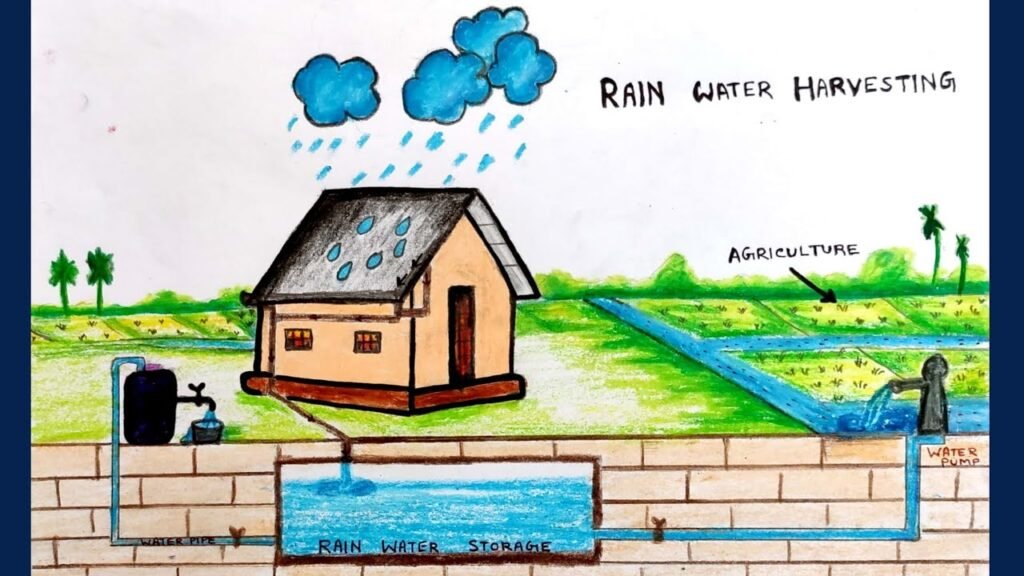 RAIN WATER HARVESTING
AGRICULTURE
WATER
PUMP
WATER PIPE
RAIN WATER STORAGE